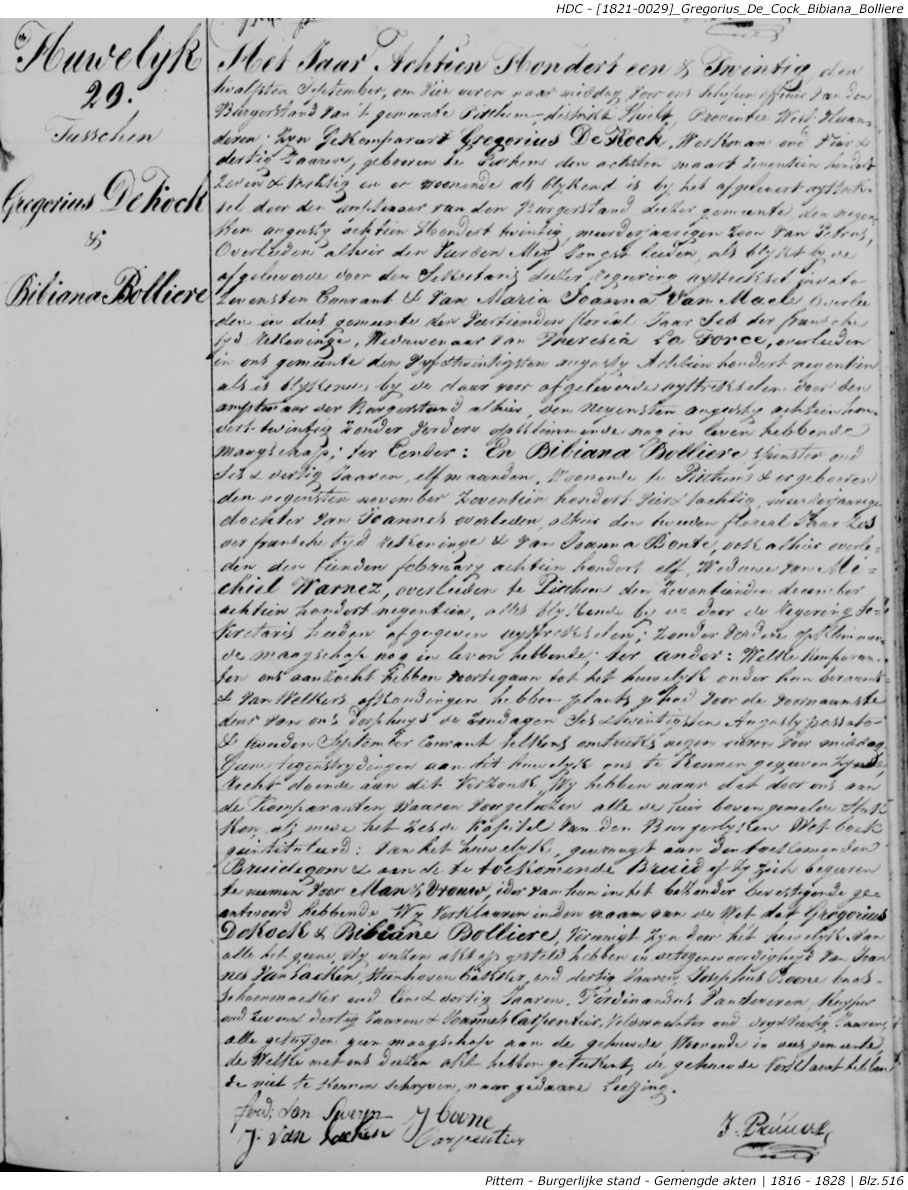 HDC - [1821-0029]_Gregorius_De_Cock_Bibiana_Bolliere
Huwelyk
29.
Tusschen
Gregorius DeKock
&
Bibiana Bolliere
Het Jaar Achtien Hondert een & Twintig den
twalfsten September, om vier uren naar middag, voor ons officier van den
Burgerstand van 't gemeente Pitthem district Thielt, Provintie West Vlaan-
deren: Zyn Gekomparart Gregorius DeKock, Werkman oud Vier &
dertig Jaaren, geboren te Pitthem den achsten maart zeventien hondert
zeven & tachtig en er woonende als blykend is by het afgelevert uyttrek-
sel door den amptenaar van den Burgerstand deezer gemeente, den negen-
sten augusty achtien Hondert twintig, meerderjaarigen zoon van Petrus,
Overleeden alhier den leeden, als blykt by de
afgeleverde door den Sekretaris deezer regering uyttreksel
zevensten Courant & van Maria Joanna Van Maele Overlee-
den in dees gemeente den Veertienden floreal Jaar Ses der fransche
tyd rekeninge, Weduwenaar van Theresia La Force, overleeden
in ons gemeente den Vyfentwintigsten augusty Achtien hondert negentien
als is blykende by de daar voor afgeleverde uyttrekselen door den
amptenaar der Burgerstand alhier, den negensten augusty achtien hon-
dert twintig zonder verdere opklimmende nog in leven hebbende
maagschap; ter Eender: En Bibiana Bolliere spinster oud
Ses & dertig Jaaren, elf maanden, Woonende te Pitthem & er geboren
den negensten november zeventien hondert vier & tachtig, meerderjaarige
dochter van Joannes overleeden, alhier den tweeden floreal Jaar Zes
der fransche tyd rekeninge & van Joanna Bonte, ook alhier overlee-
den den tienden february achtien hondert elf, Weduwe van Mi-
chiel Warnez, overleeden te Pitthem den Zeventienden december
achtien hondert negentien, alles blykende by de door de Regering se-
kretaris heeden afgegeven uyttrekselen; zonder verdere opklimmen-
de maagschap nog in leven hebbende; ter ander: Welke komparan-
ten ons aanzocht hebben voortegaan tot het huwelyk onder hun beraamt
& van welkers afkondingen hebben plaets gehad voor de voornaamste
deur van ons dorphuys de zondagen Ses & twentigsten Augusty passato
& tweeden September Courant telkens omtrent negen uren voor middag
Geene tegenstrydingen aan dit huwelyk ons te kennen gegeven zynde,
Recht doende aan dit Verzoek, Wy hebben naar dat door ons aan
de komparanten waaren voorgelezen alle de hier boven gemelde Stuk-
ken, als mede het Zesde Kapitel van den Burgerlyken Wet boek
geintituleerd: Van het huwelyke, gevraagt aan den toekomenden
Bruidegom & aan de te toekomende Bruid of zy zich begeeren
te neemen voor Man & Vrouw, ider van hun in het bezonder bevestigende ge-
antwoord hebbende Wy Verklaaren in den naam van de Wet dat Gregorius
DeKock & Bibiane Bolliere, Vereenigt Zyn door het huwelyk Van
alle het geene, Wy deezen akt opgesteld hebben in tegenwoordigheyd Van Joan-
nes Van Lacken, oud dertig Jaaren, Josephus Coone baas-
schoenmaeker oud Een & dertig Jaaren, Ferdinandus Vandeveren, Kuyper
oud zeven & dertig Jaaren & Joannes Carpentier, Veldwachter oud Jaaren,
alle getuygen geen maagschap aan de gehuwde Woonende in dees gemeente,
de Welke met ons deezen akt hebben geteekent, de gehuwde Verklaart hebben-
de niet te kennen schryven, naar gedaane Leezing.
J. Coone
J. Van Lacken Carpentier
Pittem - Burgerlijke stand - Gemengde akten | 1816 - 1828 | Blz.516